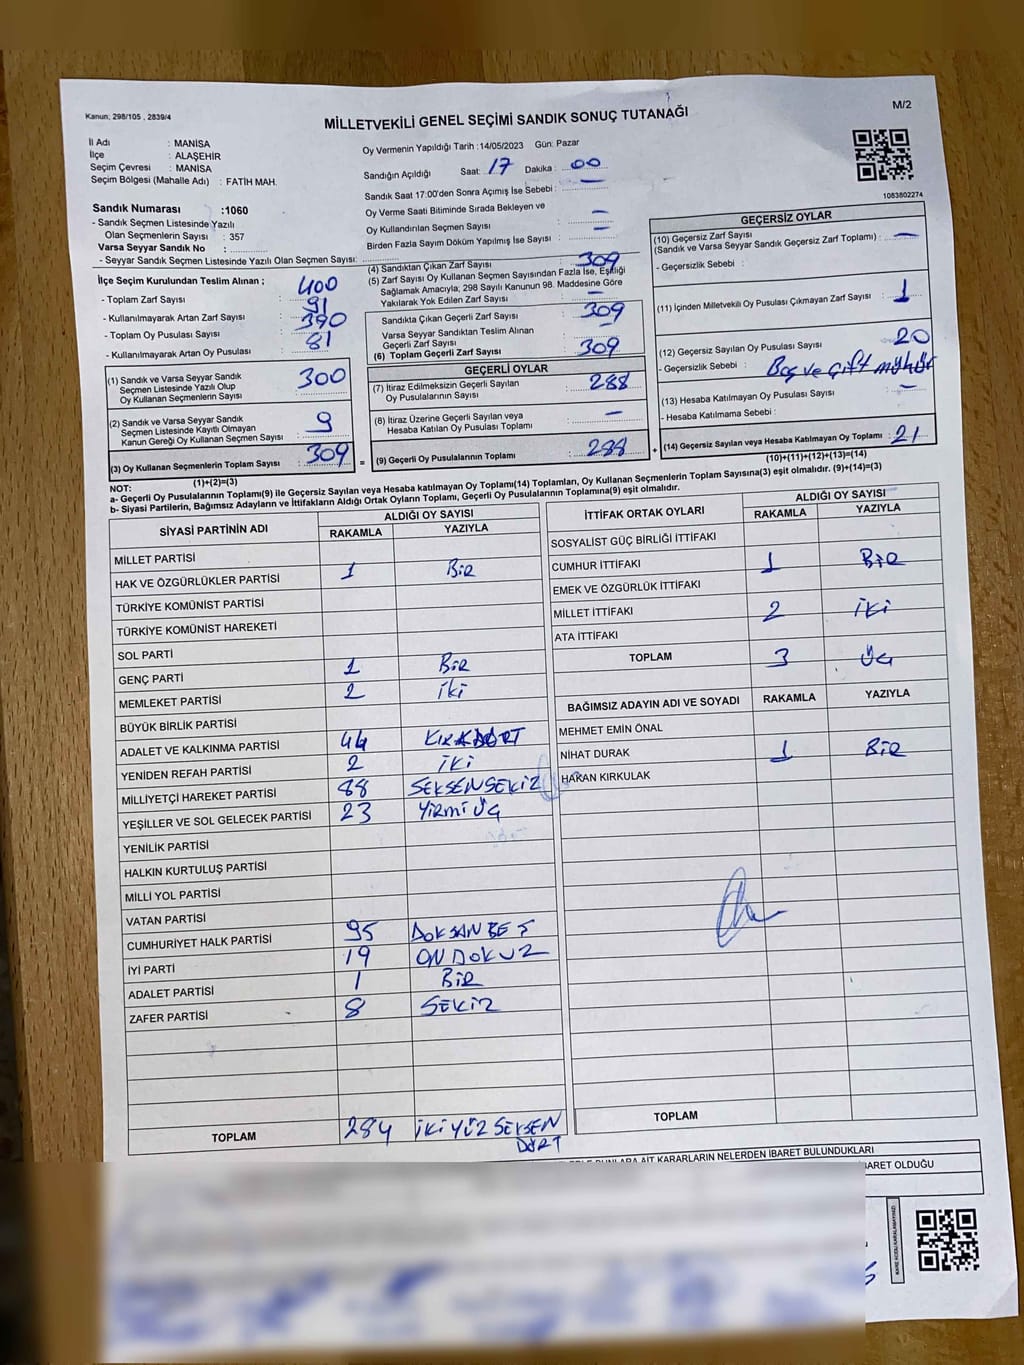 Kanun; 298/105 , 2839/4
MİLLETVEKİLİ GENEL SEÇİMİ SANDIK SONUÇ TUTANAĞI
M/2
İl Adı : MANİSA
İlçe : ALAŞEHİR
Seçim Çevresi : MANİSA
Seçim Bölgesi (Mahalle Adı) : FATİH MAH.
Oy Vermenin Yapıldığı Tarih : 14/05/2023 Gün: Pazar
Sandığın Açıldığı Saat: 17 Dakika : 00
Sandık Saat 17:00'den Sonra Açımış İse Sebebi : —
1083802274
Sandık Numarası :1060
- Sandık Seçmen Listesinde Yazılı
Olan Seçmenlerin Sayısı : 357
Varsa Seyyar Sandık No :
- Seyyar Sandık Seçmen Listesinde Yazılı Olan Seçmen Sayısı:
Oy Verme Saati Bitiminde Sırada Bekleyen ve
Oy Kullandırılan Seçmen Sayısı : —
Birden Fazla Sayım Döküm Yapılmış İse Sayısı : —
İlçe Seçim Kurulundan Teslim Alınan ;
- Toplam Zarf Sayısı : 400
- Kullanılmayarak Artan Zarf Sayısı : 91
- Toplam Oy Pusulası Sayısı : 390
- Kullanılmayarak Artan Oy Pusulası : 81
(1) Sandık ve Varsa Seyyar Sandık
Seçmen Listesinde Yazılı Olup
Oy Kullanan Seçmenlerin Sayısı : 300
(2) Sandık ve Varsa Seyyar Sandık
Seçmen Listesinde Kayıtlı Olmayan
Kanun Gereği Oy Kullanan Seçmen Sayısı : 9
(3) Oy Kullanan Seçmenlerin Toplam Sayısı : 309
(1)+(2)=(3)
(4) Sandıktan Çıkan Zarf Sayısı : 309
(5) Zarf Sayısı Oy Kullanan Seçmen Sayısından Fazla İse, Eşitliği
Sağlamak Amacıyla; 298 Sayılı Kanunun 98. Maddesine Göre
Yakılarak Yok Edilen Zarf Sayısı : —
Sandıkta Çıkan Geçerli Zarf Sayısı : 309
Varsa Seyyar Sandıktan Teslim Alınan
Geçerli Zarf Sayısı : —
(6) Toplam Geçerli Zarf Sayısı : 309
GEÇERLİ OYLAR
(7) İtiraz Edilmeksizin Geçerli Sayılan
Oy Pusulasının Sayısı : 288
(8) İtiraz Üzerine Geçerli Sayılan veya
Hesaba Katılan Oy Pusulası Toplamı : —
= (9) Geçerli Oy Pusulalarının Toplamı : 288 +
GEÇERSİZ OYLAR
(10) Geçersiz Zarf Sayısı
(Sandık ve Varsa Seyyar Sandık Geçersiz Zarf Toplamı) : —
- Geçersizlik Sebebi :
(11) İçinden Milletvekili Oy Pusulası Çıkmayan Zarf Sayısı : 1
(12) Geçersiz Sayılan Oy Pusulası Sayısı : 20
- Geçersizlik Sebebi : Boş ve çift mühür
(13) Hesaba Katılmayan Oy Pusulası Sayısı : —
- Hesaba Katılmama Sebebi :
(14) Geçersiz Sayılan veya Hesaba Katılmayan Oy Toplamı : 21
(10)+(11)+(12)+(13)=(14)
NOT:
a- Geçerli Oy Pusulalarının Toplamı(9) ile Geçersiz Sayılan veya Hesaba katılmayan Oy Toplamı(14) Toplamları, Oy Kullanan Seçmenlerin Toplam Sayısına(3) eşit olmalıdır. (9)+(14)=(3)
b- Siyasi Partilerin, Bağımsız Adayların ve İttifakların Aldığı Ortak Oyların Toplamı, Geçerli Oy Pusulalarının Toplamına(9) eşit olmalıdır.
SİYASİ PARTİNİN ADI ALDIĞI OY SAYISI
RAKAMLA YAZIYLA
MİLLET PARTİSİ
HAK VE ÖZGÜRLÜKLER PARTİSİ 1 BİR
TÜRKİYE KOMÜNİST PARTİSİ
TÜRKİYE KOMÜNİST HAREKETİ
SOL PARTİ
GENÇ PARTİ 1 BİR
MEMLEKET PARTİSİ 2 iki
BÜYÜK BİRLİK PARTİSİ
ADALET VE KALKINMA PARTİSİ 44 KIRKDÖRT
YENİDEN REFAH PARTİSİ 2 İKİ
MİLLİYETÇİ HAREKET PARTİSİ 88 SEKSENSEKİZ
YEŞİLLER VE SOL GELECEK PARTİSİ 23 YİRMİ ÜÇ
YENİLİK PARTİSİ
HALKIN KURTULUŞ PARTİSİ
MİLLİ YOL PARTİSİ
VATAN PARTİSİ
CUMHURİYET HALK PARTİSİ 95 DOKSAN BEŞ
İYİ PARTİ 19 ON DOKUZ
ADALET PARTİSİ 1 BİR
ZAFER PARTİSİ 8 SEKİZ
TOPLAM 284 İKİ YÜZ SEKSEN
DÖRT
İTTİFAK ORTAK OYLARI ALDIĞI OY SAYISI
RAKAMLA YAZIYLA
SOSYALİST GÜÇ BİRLİĞİ İTTİFAKI
CUMHUR İTTİFAKI 1 BİR
EMEK VE ÖZGÜRLÜK İTTİFAKI
MİLLET İTTİFAKI 2 İKİ
ATA İTTİFAKI
TOPLAM 3 ÜÇ
BAĞIMSIZ ADAYIN ADI VE SOYADI RAKAMLA YAZIYLA
MEHMET EMİN ÖNAL
NİHAT DURAK 1 BİR
HAKAN KIRKULAK
TOPLAM
BUNLARA AİT KARARLARIN NELERDEN İBARET BULUNDUKLARI
BARET OLDUĞU